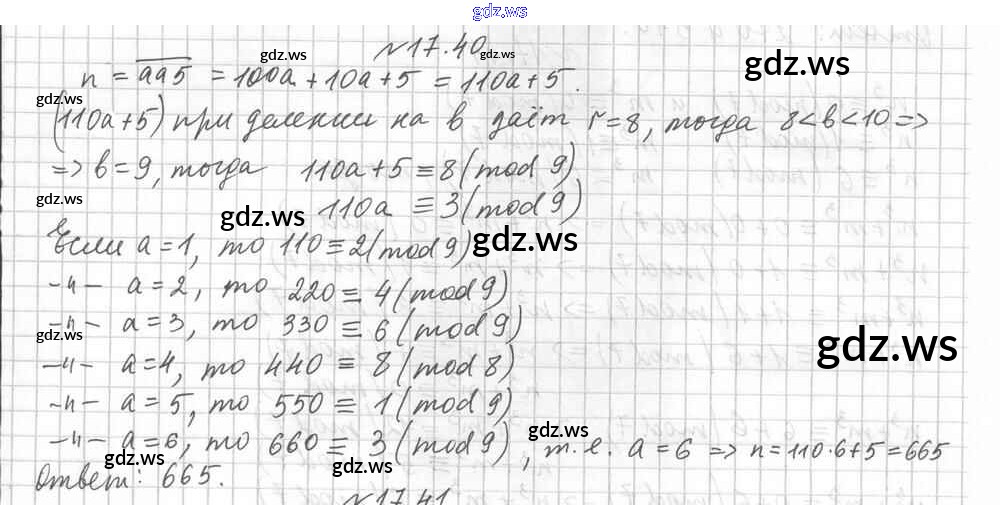 gdz.ws
№17.40
n = aa5 = 100a + 10a + 5 = 110a + 5.
(110a+5) при делении на в даёт r=8, тогда 8<в<10 =>
=> в=9, тогда 110a+5 ≡ 8 (mod 9)
110a ≡ 3 (mod 9)
Если a=1, то 110 ≡ 2 (mod 9)
-"- a=2, то 220 ≡ 4 (mod 9)
-"- a=3, то 330 ≡ 6 (mod 9)
-"- a=4, то 440 ≡ 8 (mod 8)
-"- a=5, то 550 ≡ 1 (mod 9)
-"- a=6, то 660 ≡ 3 (mod 9), т.е. a=6 => n=110·6+5=665
Ответ: 665.
№17.41
gdz.ws
gdz.ws
gdz.ws
gdz.ws
gdz.ws
gdz.ws
gdz.ws
gdz.ws
gdz.ws
gdz.ws
gdz.ws
gdz.ws
gdz.ws